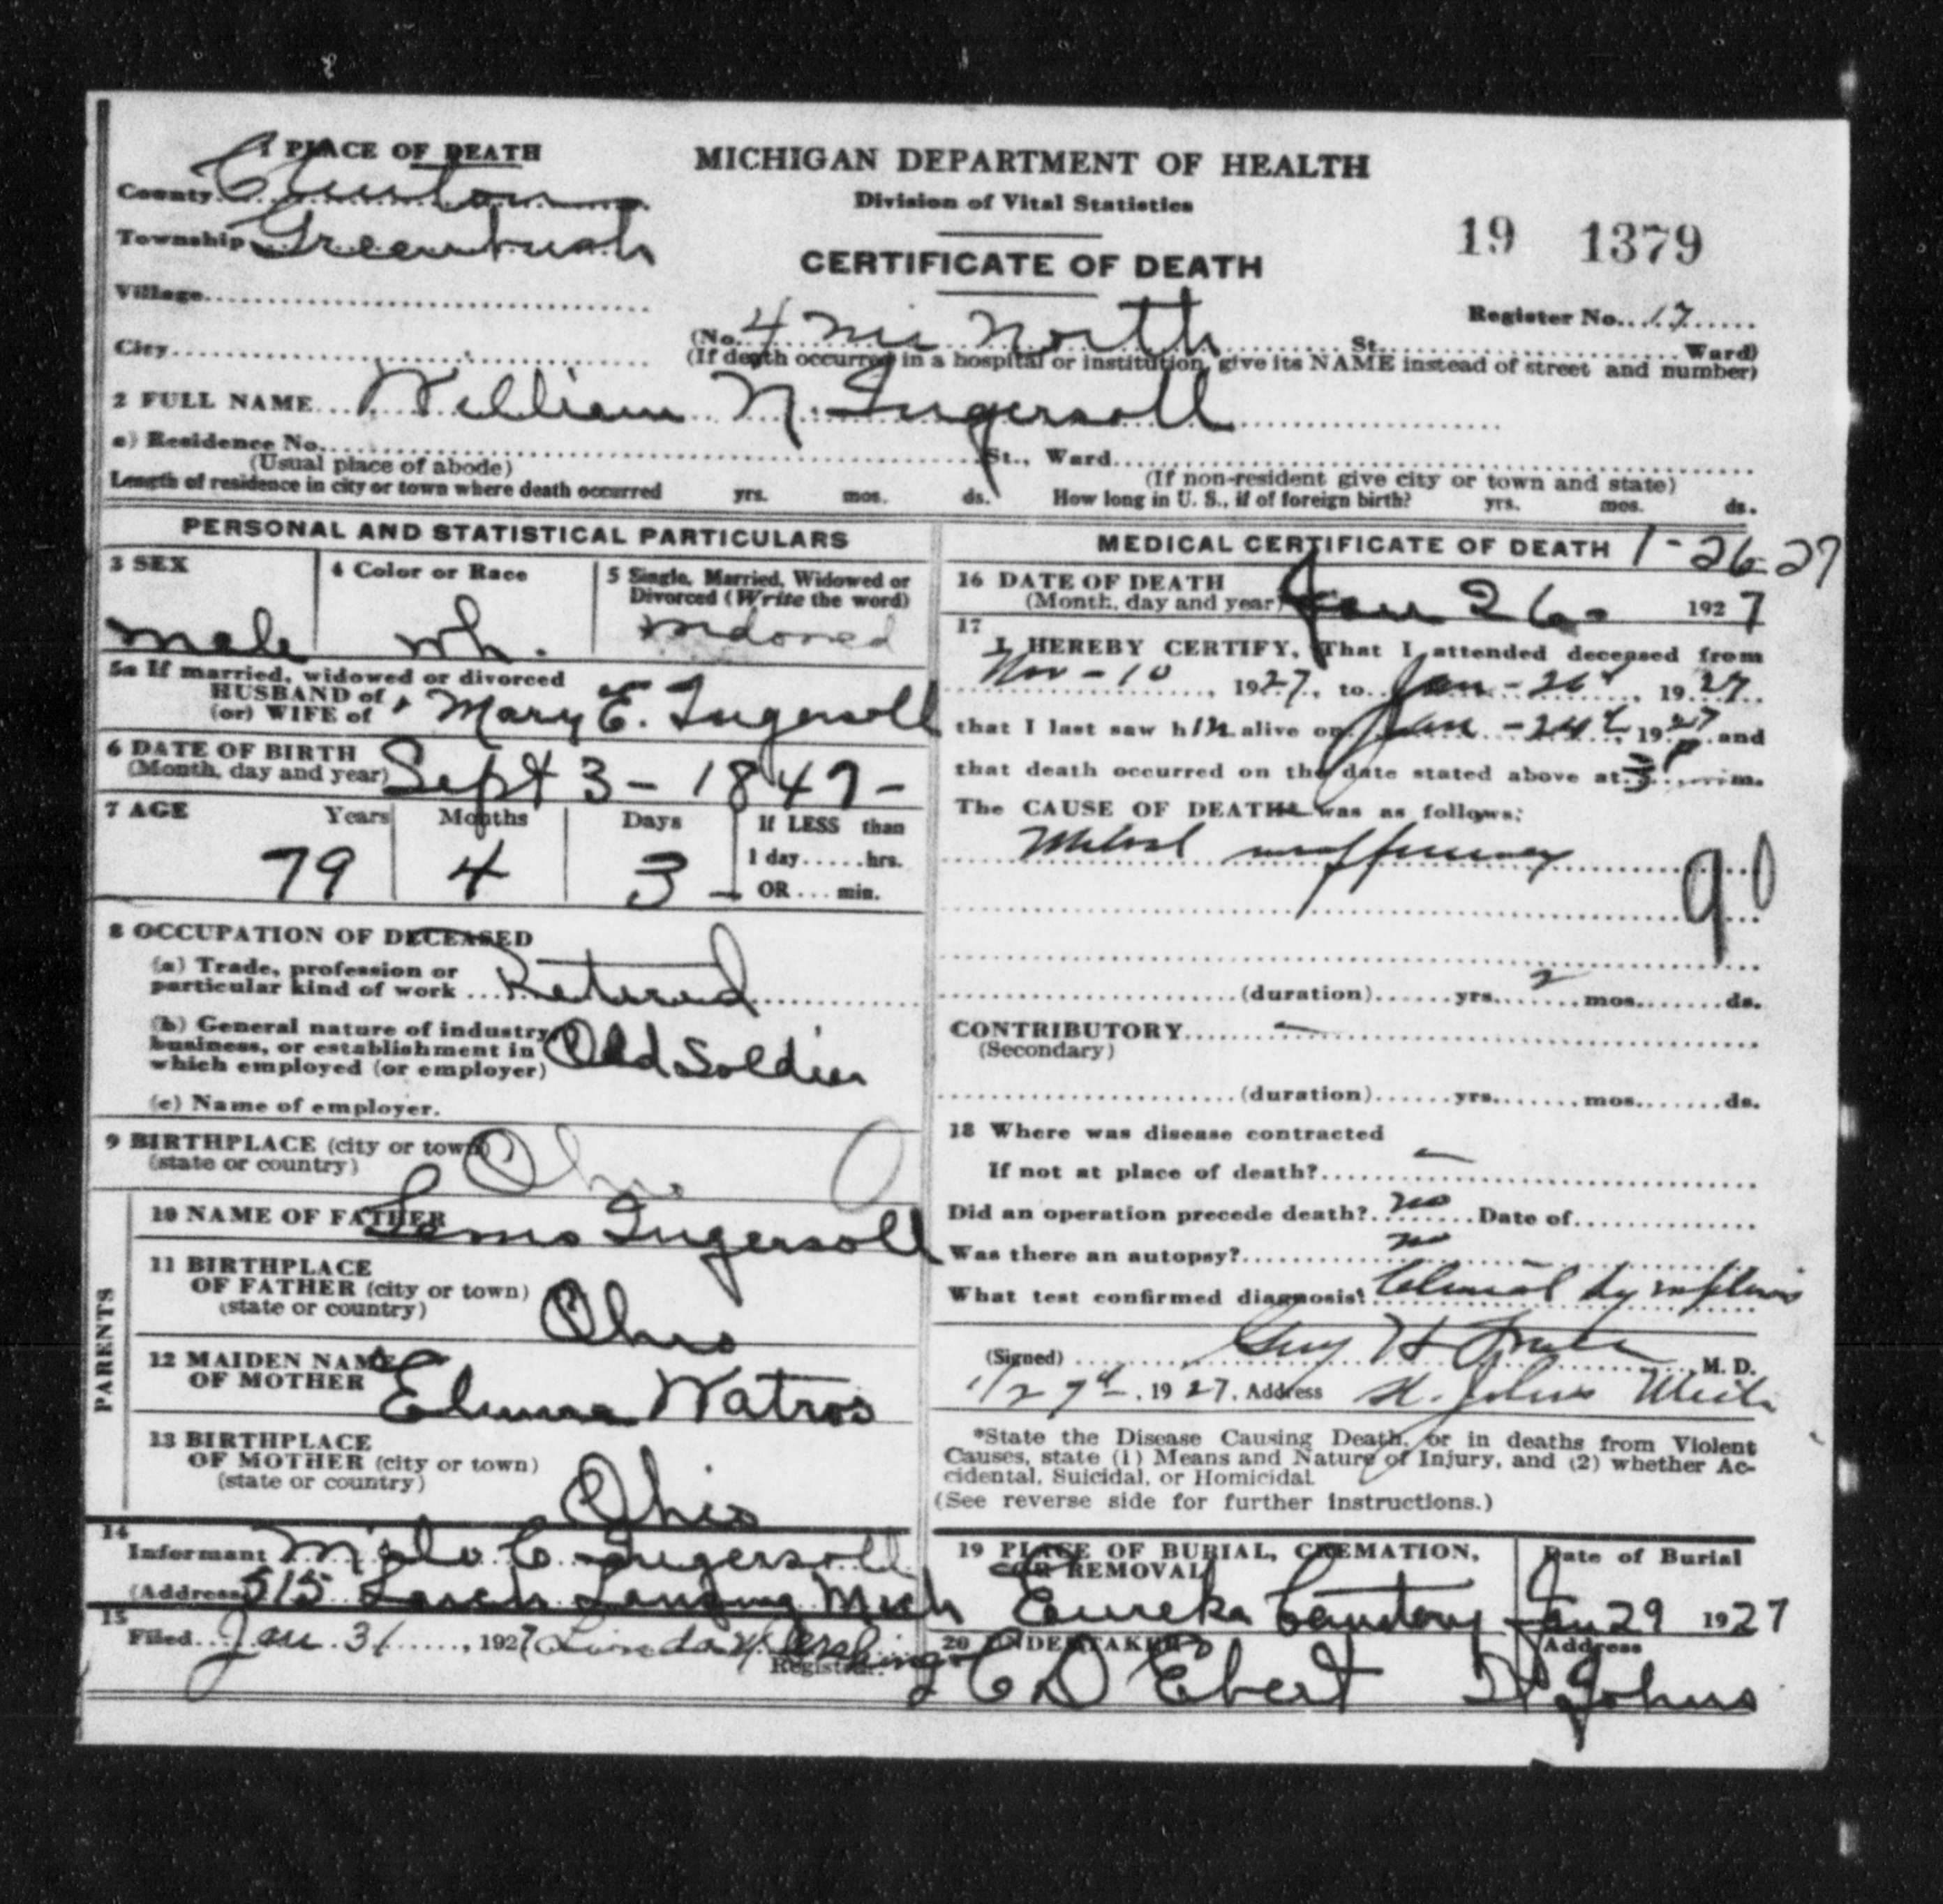 1 PLACE OF DEATH
County Clinton
Township Greenbush
Village
City
MICHIGAN DEPARTMENT OF HEALTH
Division of Vital Statistics
CERTIFICATE OF DEATH
19 1379
Register No. 17
(No. 4 mi North St. Ward)
(If death occurred in a hospital or institution, give its NAME instead of street and number)
2 FULL NAME William N. Ingersoll
a) Residence No. St., Ward
(Usual place of abode) (If non-resident give city or town and state)
Length of residence in city or town where death occurred yrs. mos. ds. How long in U. S., if of foreign birth? yrs. mos. ds.
PERSONAL AND STATISTICAL PARTICULARS
3 SEX
male
4 Color or Race
wh.
5 Single, Married, Widowed or
Divorced (Write the word)
Widowed
5a If married, widowed or divorced
HUSBAND of
(or) WIFE of Mary E. Ingersoll
6 DATE OF BIRTH
(Month, day and year) Sept 3 - 1847 -
7 AGE Years Months Days If LESS than
1 day......hrs.
OR .... min.
79 4 3 -
8 OCCUPATION OF DECEASED
(a) Trade, profession or
particular kind of work Retired
(b) General nature of industry
business, or establishment in
which employed (or employer) Old Soldier
(c) Name of employer.
9 BIRTHPLACE (city or town)
(state or country) Ohio
PARENTS
10 NAME OF FATHER Ingersoll
11 BIRTHPLACE
OF FATHER (city or town)
(state or country) Ohio
12 MAIDEN NAME
OF MOTHER Watros
13 BIRTHPLACE
OF MOTHER (city or town)
(state or country) Ohio
14
Informant Milo C. Ingersoll
(Address) 515 Lansing Mich
15
Filed Jan 31, 1927 Linda
Registrar.
MEDICAL CERTIFICATE OF DEATH 1-26-27
16 DATE OF DEATH
(Month, day and year) Jan 26 - 1927
17
I HEREBY CERTIFY, That I attended deceased from
Nov - 10, 1927, to Jan - 26, 1927
that I last saw him alive on Jan - 24, 1927 and
that death occurred on the date stated above at 3 P m.
The CAUSE OF DEATH* was as follows:
Mitral insufficiency
90
(duration) yrs. 2 mos. ds.
CONTRIBUTORY -
(Secondary)
(duration) yrs. mos. ds.
18 Where was disease contracted
If not at place of death? -
Did an operation precede death? no Date of
Was there an autopsy? no
What test confirmed diagnosis? Clinical symptoms
(Signed) Guy H M. D.
1/27, 1927. Address St. Johns Mich
*State the Disease Causing Death, or in deaths from Violent
Causes, state (1) Means and Nature of Injury, and (2) whether Ac-
cidental, Suicidal, or Homicidal.
(See reverse side for further instructions.)
19 PLACE OF BURIAL, CREMATION,
OR REMOVAL
Eureka Cemetery
Date of Burial
Jan 29 1927
20 UNDERTAKER
E D Ebert
Address
St Johns